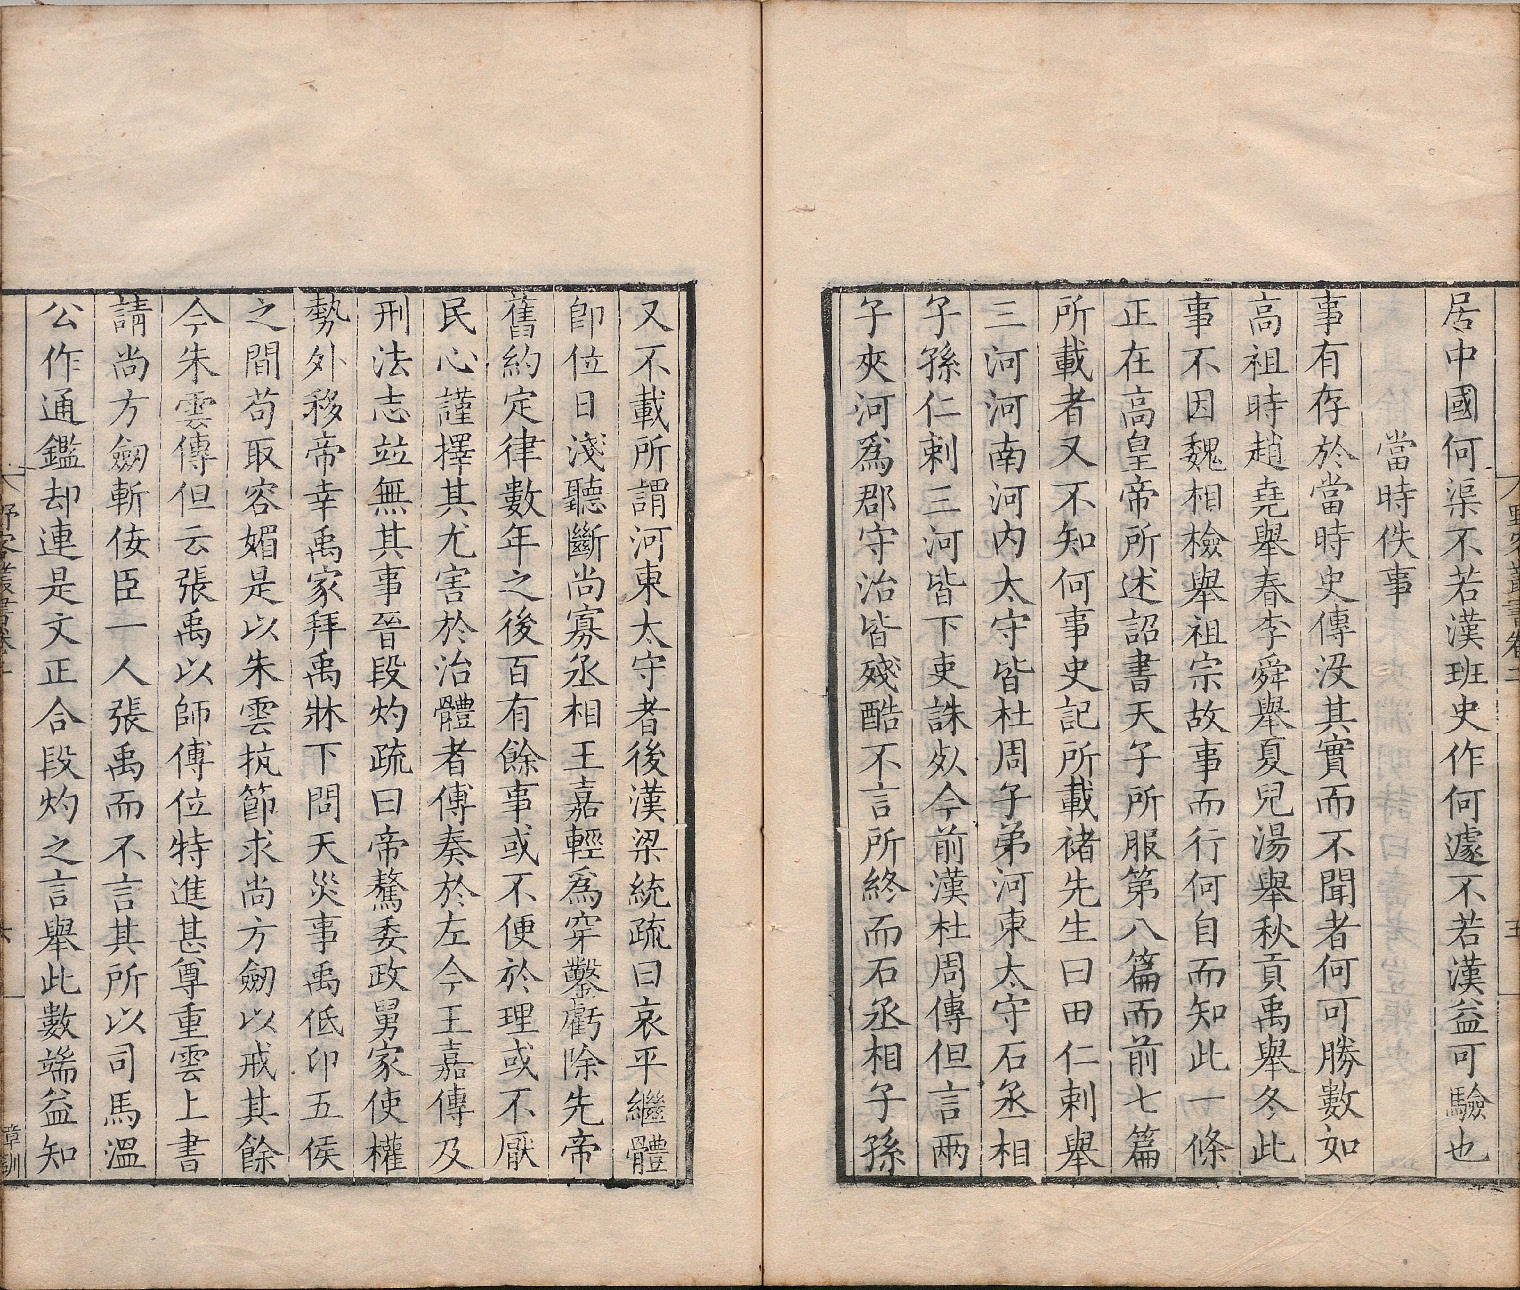 野客叢書卷二
五
居中國何渠不若漢班史作何遽不若漢益可驗也
當時佚事
事有存於當時史傳沒其實而不聞者何可勝數如
高祖時趙堯舉春李舜舉夏兒湯舉秋貢禹舉冬此
事不因魏相檢舉祖宗故事而行何自而知此一條
正在高皇帝所述詔書天子所服第八篇而前七篇
所載者又不知何事史記所載褚先生曰田仁刺舉
三河河南河內太守皆杜周子弟河東太守石丞相
子孫仁刺三河皆下吏誅死今前漢杜周傳但言兩
子夾河爲郡守治皆殘酷不言所終而石丞相子孫
又不載所謂河東太守者後漢梁統疏曰哀平繼體
卽位日淺聽斷尚寡丞相王嘉輕爲穿鑿虧除先帝
舊約定律數年之後百有餘事或不便於理或不厭
民心謹擇其尤害於治體者傅奏於左今王嘉傳及
刑法志並無其事晉段灼疏曰帝驁委政舅家使權
勢外移帝幸禹家拜禹牀下問天災事禹低卬五侯
之間苟取容媚是以朱雲抗節求尚方劒以戒其餘
今朱雲傳但云張禹以師傅位特進甚尊重雲上書
請尚方劒斬佞臣一人張禹而不言其所以司馬溫
公作通鑑却連是文正合段灼之言舉此數端益知
野客叢書卷二
六
章訓